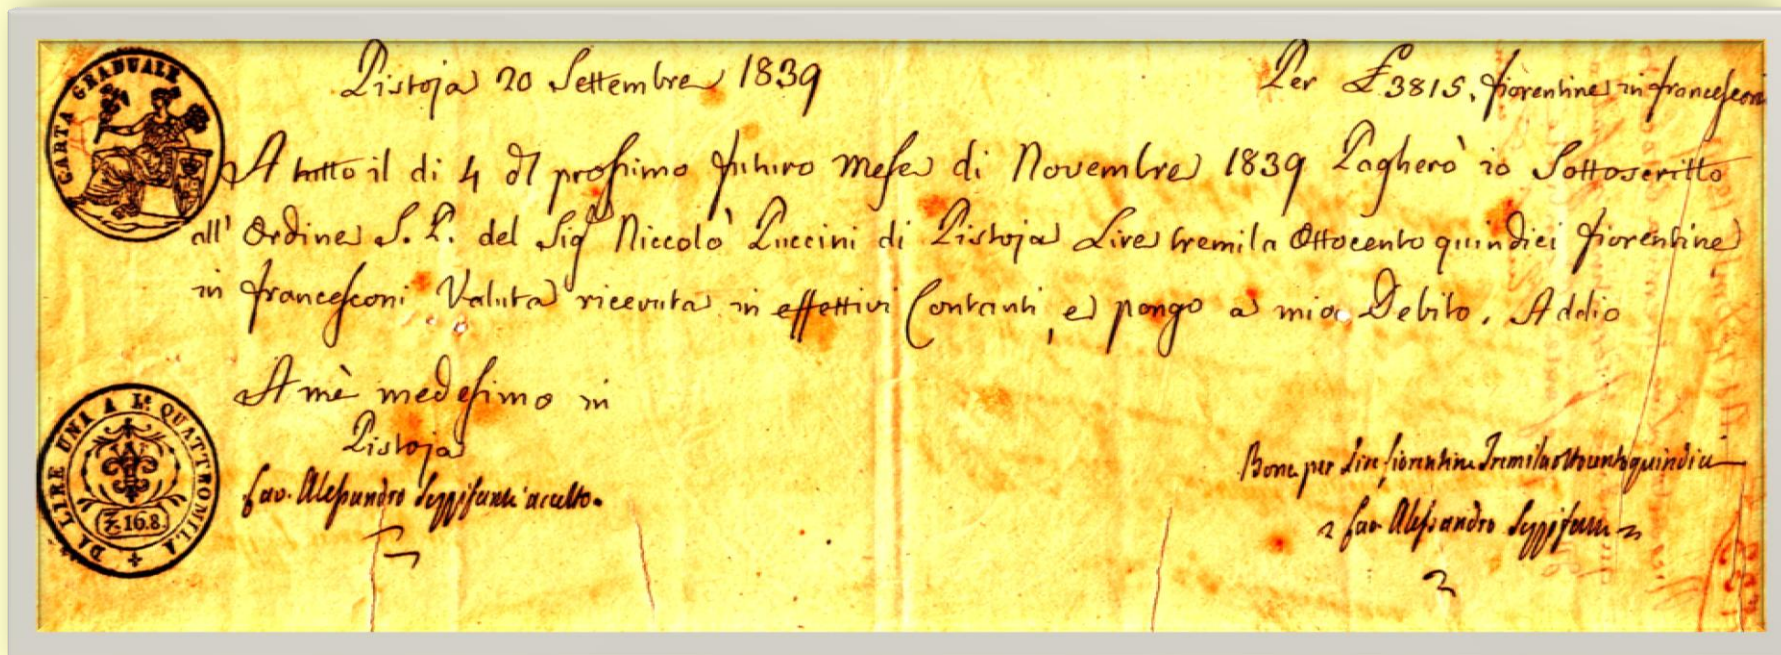 CARTA GRADUALE
Pistoja 20 Settembre 1839
Per £ 3815. fiorentine in francesconi
A tutto il di 4 dl prossimo futuro Mese di Novembre 1839 Pagherò io Sottoscritto
all' Ordine S. P. del Sigr Niccolò Puccini di Pistoja Lire tremila Ottocento quindici fiorentine
in francesconi Valuta ricevuta in effettivi Contanti, e pongo a mio Debito. Addio
A mè medesimo in
Pistoja
Cav. Alessandro accetto.
DI LIRE UNA A Le. QUATTROMILA
16.8.
Bono per Lire fiorentine Tremilaottocentoquindici
Cav. Alessandro